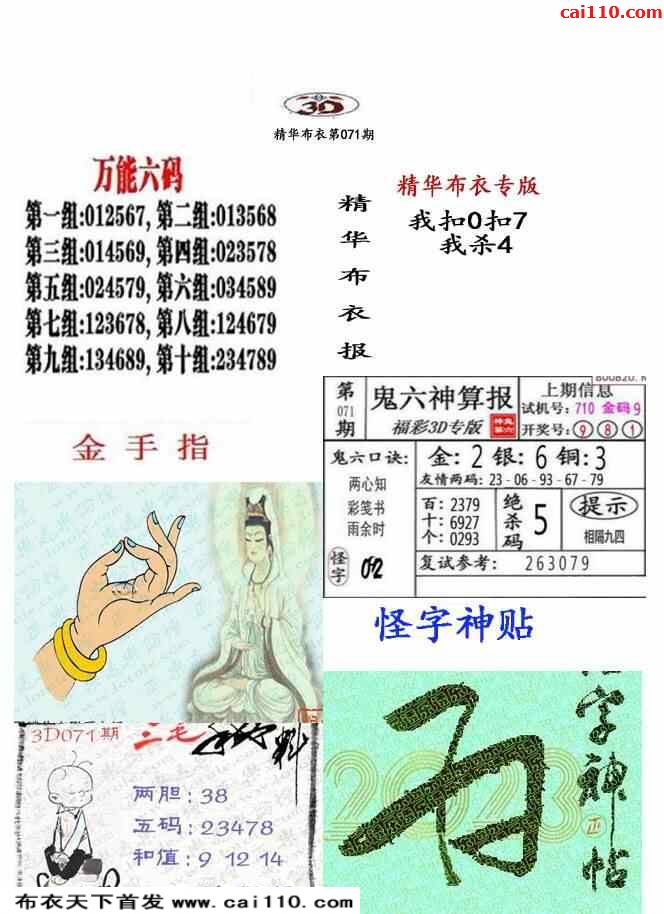 cai110.com
3D
精华布衣第071期
万能六码
第一组:012567, 第二组:013568
第三组:014569, 第四组:023578
第五组:024579, 第六组:034589
第七组:123678, 第八组:124679
第九组:134689, 第十组:234789
精华布衣报
精华布衣专版
我扣0扣7
我杀4
金手指
第071期
鬼六神算报
福彩3D专版
上期信息
试机号: 710 金码 9
开奖号: 9 8 1
鬼六口诀:
两心知
彩笺书
雨余时
怪字 02
金: 2 银: 6 铜: 3
友情两码: 23-06-93-67-79
百: 2379
十: 6927
个: 0293
绝杀码 5
提示
相隔九四
复试参考: 263079
怪字神贴
怪字神帖
2023
3D071期 三毛
料
两胆: 38
五码: 23478
和值: 9 12 14
布衣天下首发 www.cai110.com